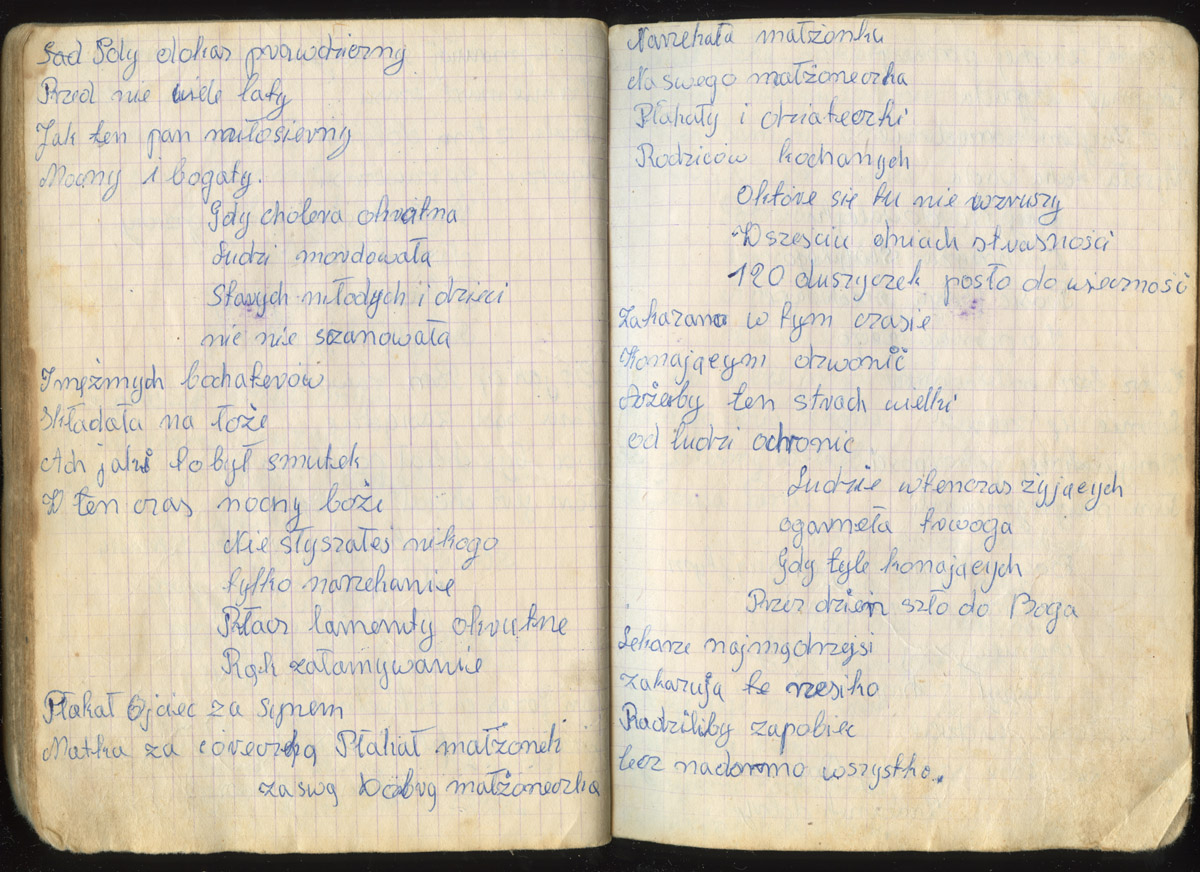 Sąd Pdy dokas prawdzierny
Przed nie wiele laty
Jak ten pan miłosierny
Mocny i bogaty.
Gdy cholera okrótna
Ludzi mordowała
Starych młodych i dzieci
nie nie szanowała
I mężmych bochaterów
Składała na łoże
Ach jaki to był smutek
W ten czas mocny boże
Nie słyszałeś nikogo
tylko narzekanie
Płacz lamenty okrutne
Rąk załamywanie
Płakał Ojciec za synem
Matka za córeczką Płakał małżonek
za swą Dobrą małżoneczką
Narzekała małżonka
Na swego małżoneczka
Płakały i dziateczki
Rodziców kochanych
O które się tu nie wzruszy
W sześciu dniach strasności
120 duszyczek posło do wieczność
Zakazano w tym czasie
Konającym dzwonić
Ażeby ten strach wielki
od ludzi ochronić
Ludzie wtenczas żyjących
ogarneła trwoga
Gdy tyle konających
Przez dzień szło do Boga
Lekarze najmądrzejsi
zakazują te
Radziliby zapobiec
lecz nadaremno wszystko.